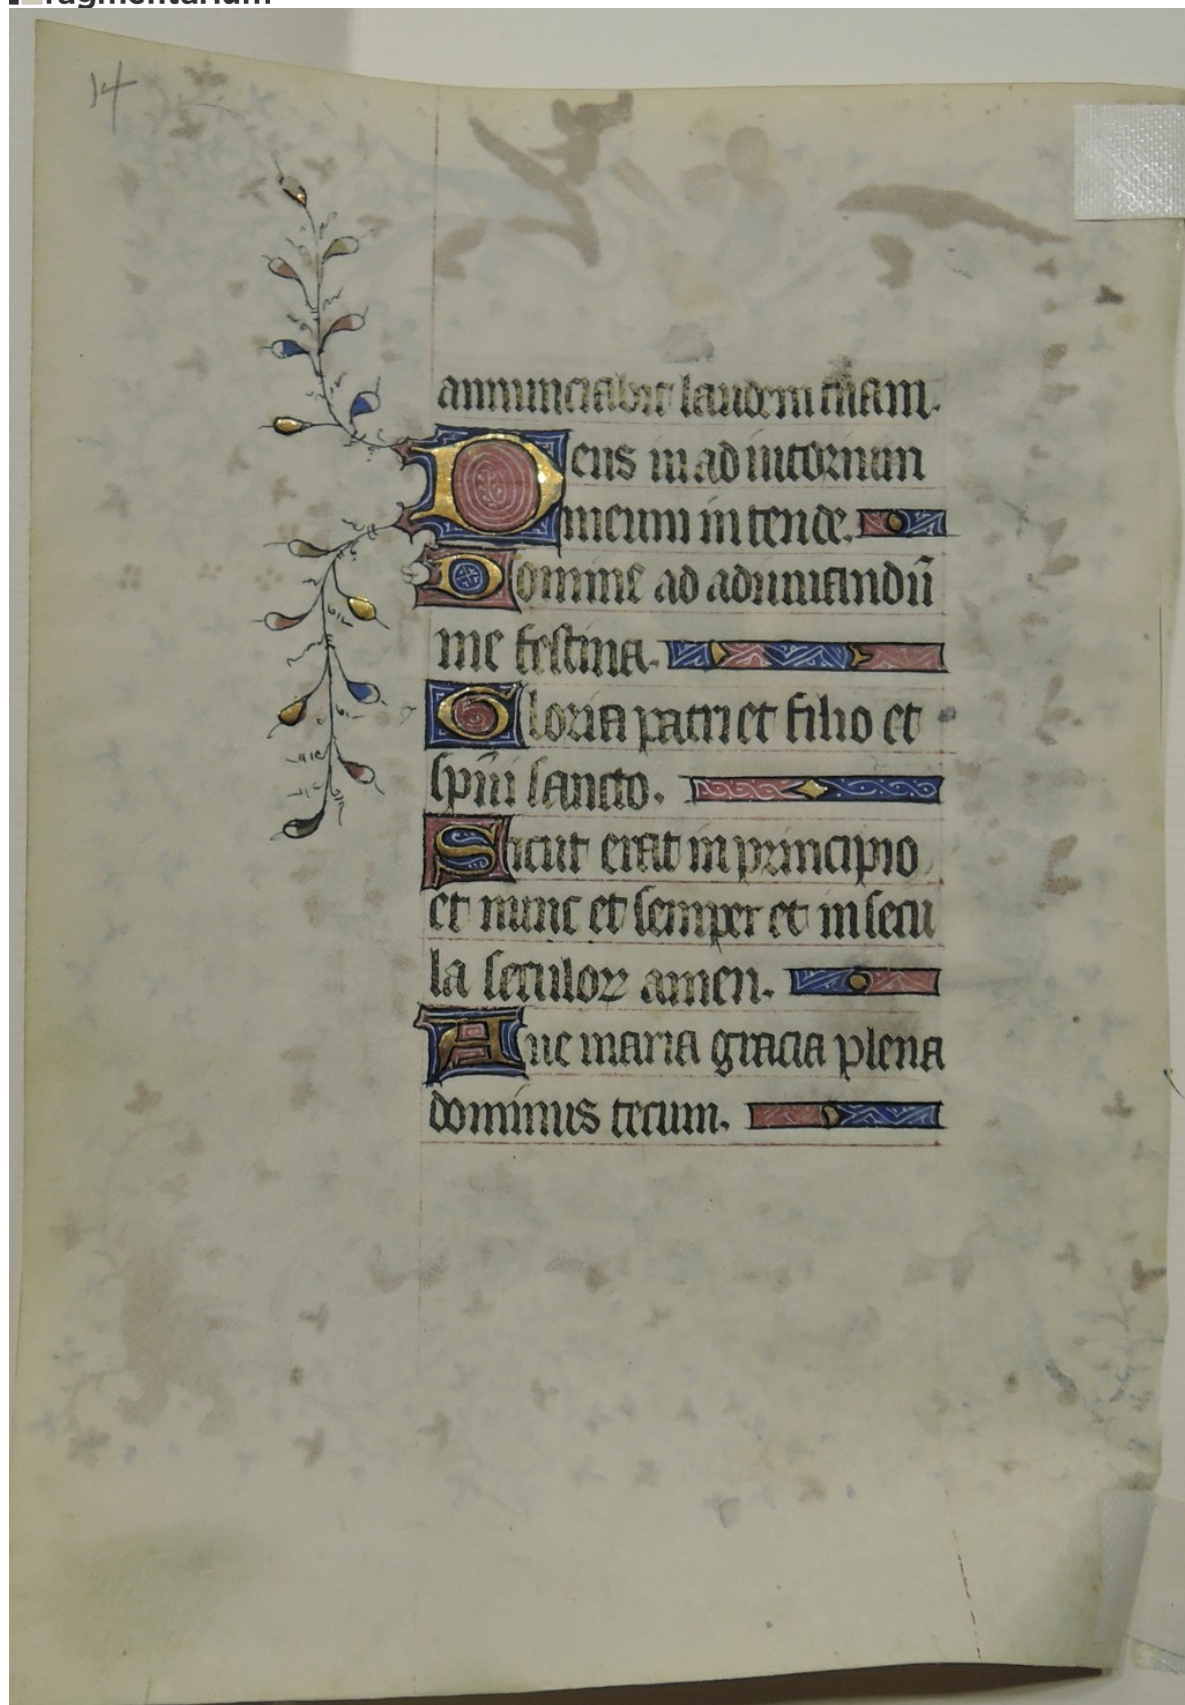 fragmentarium
14
annunciabit laudem tuam.
Deus in adiutorium
meum intende.
Domine ad adiuuandū
me festina.
Gloria patri et filio et
sp̄ui sancto.
Sicut erat in principio
et nunc et semper et in secu
la seculoꝝ amen.
Aue maria gracia plena
dominus tecum.